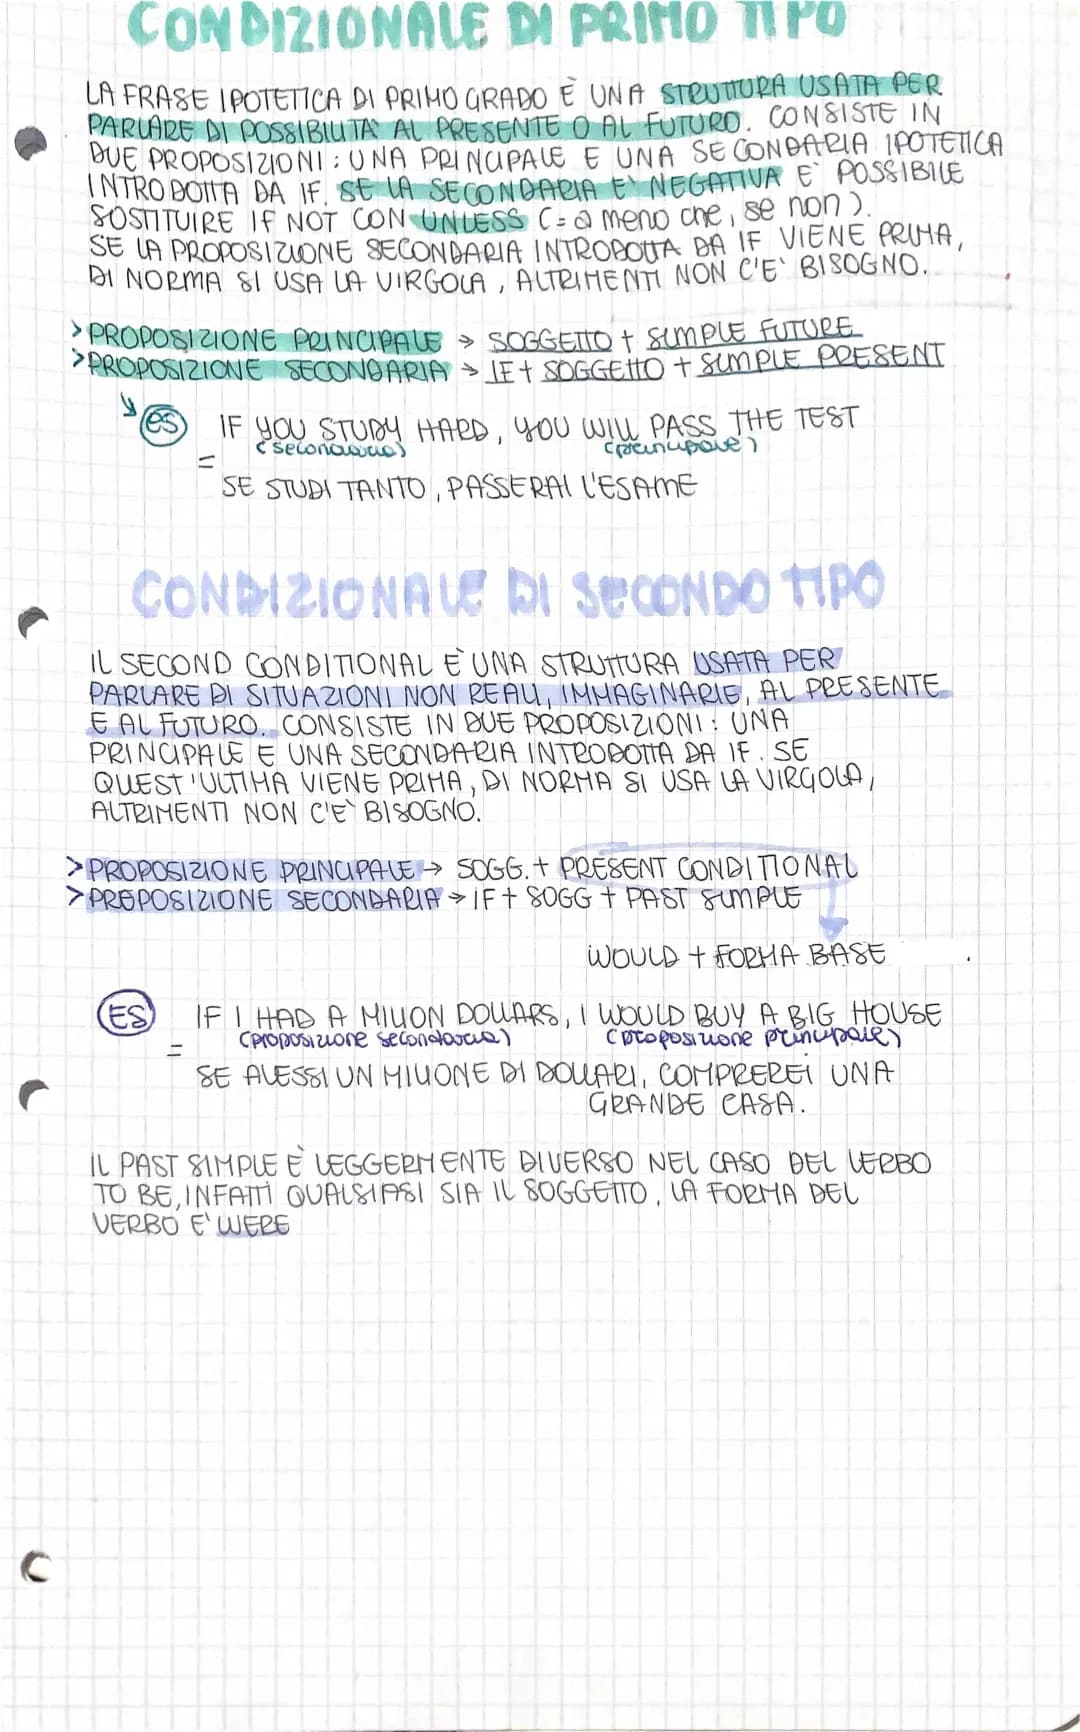 CONDIZIONALE DI PRIMO TIPO
LA FRASE IPOTETICA DI PRIMO GRADO È UNA STRUTTURA USATA PER
PARLARE DI POSSIBILITA' AL PRESENTE O AL FUTURO. CONSISTE IN
DUE PROPOSIZIONI: UNA PRINCIPALE E UNA SECONDARIA IPOTETICA
INTRODOTTA DA IF. SE LA SECONDARIA E' NEGATIVA E' POSSIBILE
SOSTITUIRE IF NOT CON UNLESS (= a meno che, se non).
SE LA PROPOSIZIONE SECONDARIA INTRODOTTA DA IF VIENE PRIMA,
DI NORMA SI USA LA VIRGOLA, ALTRIMENTI NON C'E' BISOGNO.
> PROPOSIZIONE PRINCIPALE → SOGGETTO + SIMPLE FUTURE
> PROPOSIZIONE SECONDARIA → IF + SOGGETTO + SIMPLE PRESENT
es IF YOU STUDY HARD, YOU WILL PASS THE TEST
(secondaria) (principale)
=
SE STUDI TANTO, PASSERAI L'ESAME
CONDIZIONALE DI SECONDO TIPO
IL SECOND CONDITIONAL E' UNA STRUTTURA USATA PER
PARLARE DI SITUAZIONI NON REALI, IMMAGINARIE, AL PRESENTE
E AL FUTURO. CONSISTE IN DUE PROPOSIZIONI: UNA
PRINCIPALE E UNA SECONDARIA INTRODOTTA DA IF. SE
QUEST'ULTIMA VIENE PRIMA, DI NORMA SI USA LA VIRGOLA,
ALTRIMENTI NON C'E' BISOGNO.
> PROPOSIZIONE PRINCIPALE → SOGG. + PRESENT CONDITIONAL
> PREPOSIZIONE SECONDARIA → IF + SOGG + PAST SIMPLE
WOULD + FORMA BASE
ES IF I HAD A MILION DOLLARS, I WOULD BUY A BIG HOUSE
(proposizione secondaria) (proposizione principale)
=
SE AVESSI UN MILIONE DI DOLLARI, COMPREREI UNA
GRANDE CASA.
IL PAST SIMPLE È LEGGERMENTE DIVERSO NEL CASO DEL VERBO
TO BE, INFATTI QUALSIASI SIA IL SOGGETTO, LA FORMA DEL
VERBO E' WERE